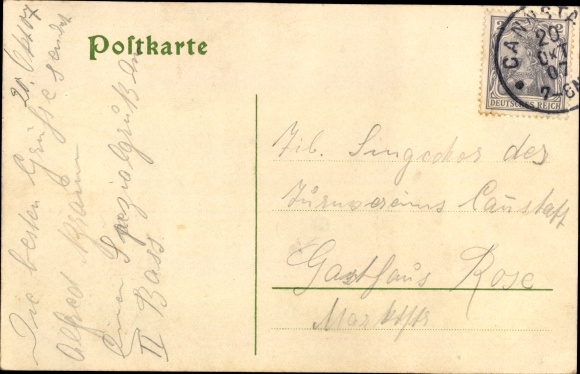 Postkarte
CANNSTA
20
OKT
07
7-8N
DEUTSCHES REICH
20. Okt. 07
Die besten Grüße sendet
Alfred Braun
Einen Spezialgruß dem
II Bass
Singchor des
Turnvereins Canstatt
Gasthaus Rose
Marktstr